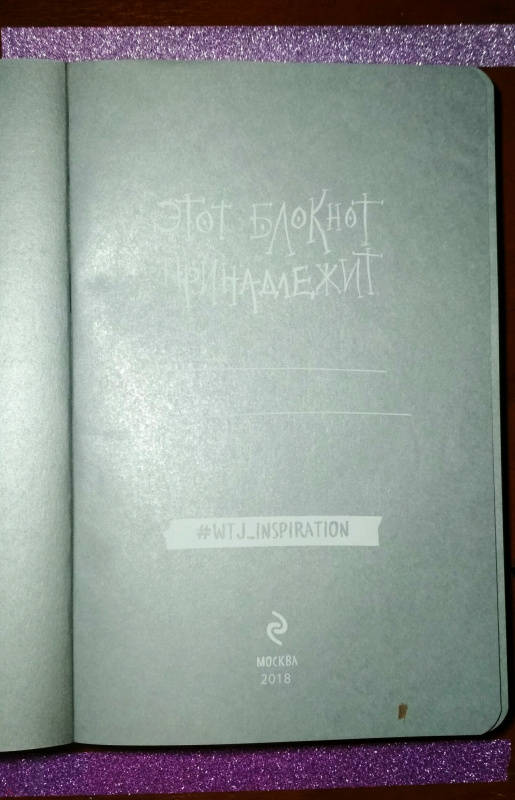 ЭТОТ БЛОКНОТ
ПРИНАДЛЕЖИТ
#WTJ_INSPIRATION
МОСКВА
2018